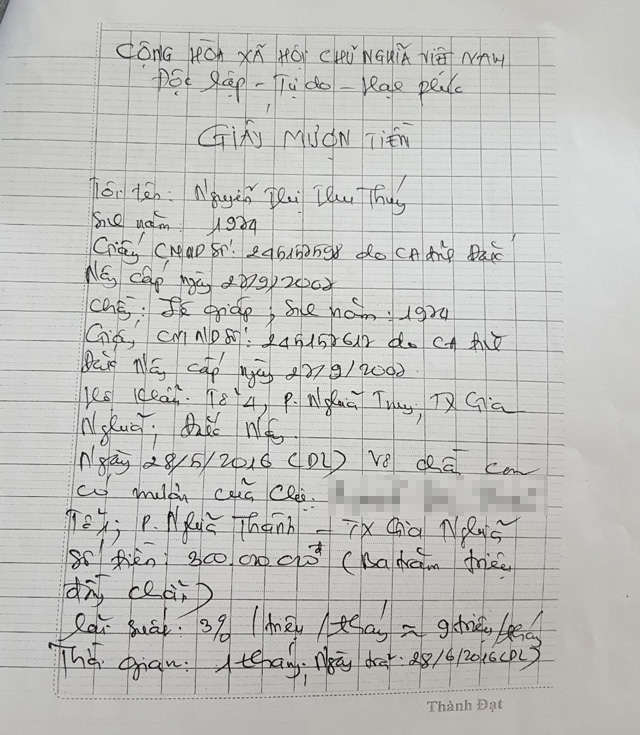 CỘNG HÒA XÃ HỘI CHỦ NGHĨA VIỆT NAM
Độc lập - Tự do - Hạnh phúc
GIẤY MƯỢN TIỀN
Tôi tên: Nguyễn Thị Thu Thủy
Sinh năm: 1974
Giấy CMND Số: 245152598 do CA tỉnh Đắc
Nông cấp ngày 27/9/2002
Chồng: Lê Giáp, Sinh năm: 1974
Giấy CMND Số: 245152612 do CA tỉnh
Đắc Nông cấp ngày 27/9/2002
Hộ khẩu: Tổ 4, P. Nghĩa Trung, TX Gia
Nghĩa, Đắc Nông.
Ngày 28/5/2016 (DL) Vợ chồng con
có mượn của Chị:
Tổ, P. Nghĩa Thành - TX Gia Nghĩa
Số tiền: 300.000.000đ (Ba trăm triệu
đồng chẵn)
Lãi suất: 3% / triệu / tháng ≈ 9 triệu/tháng
Thời gian: 1 tháng, Ngày trả: 28/6/2016 (DL)
Thành Đạt